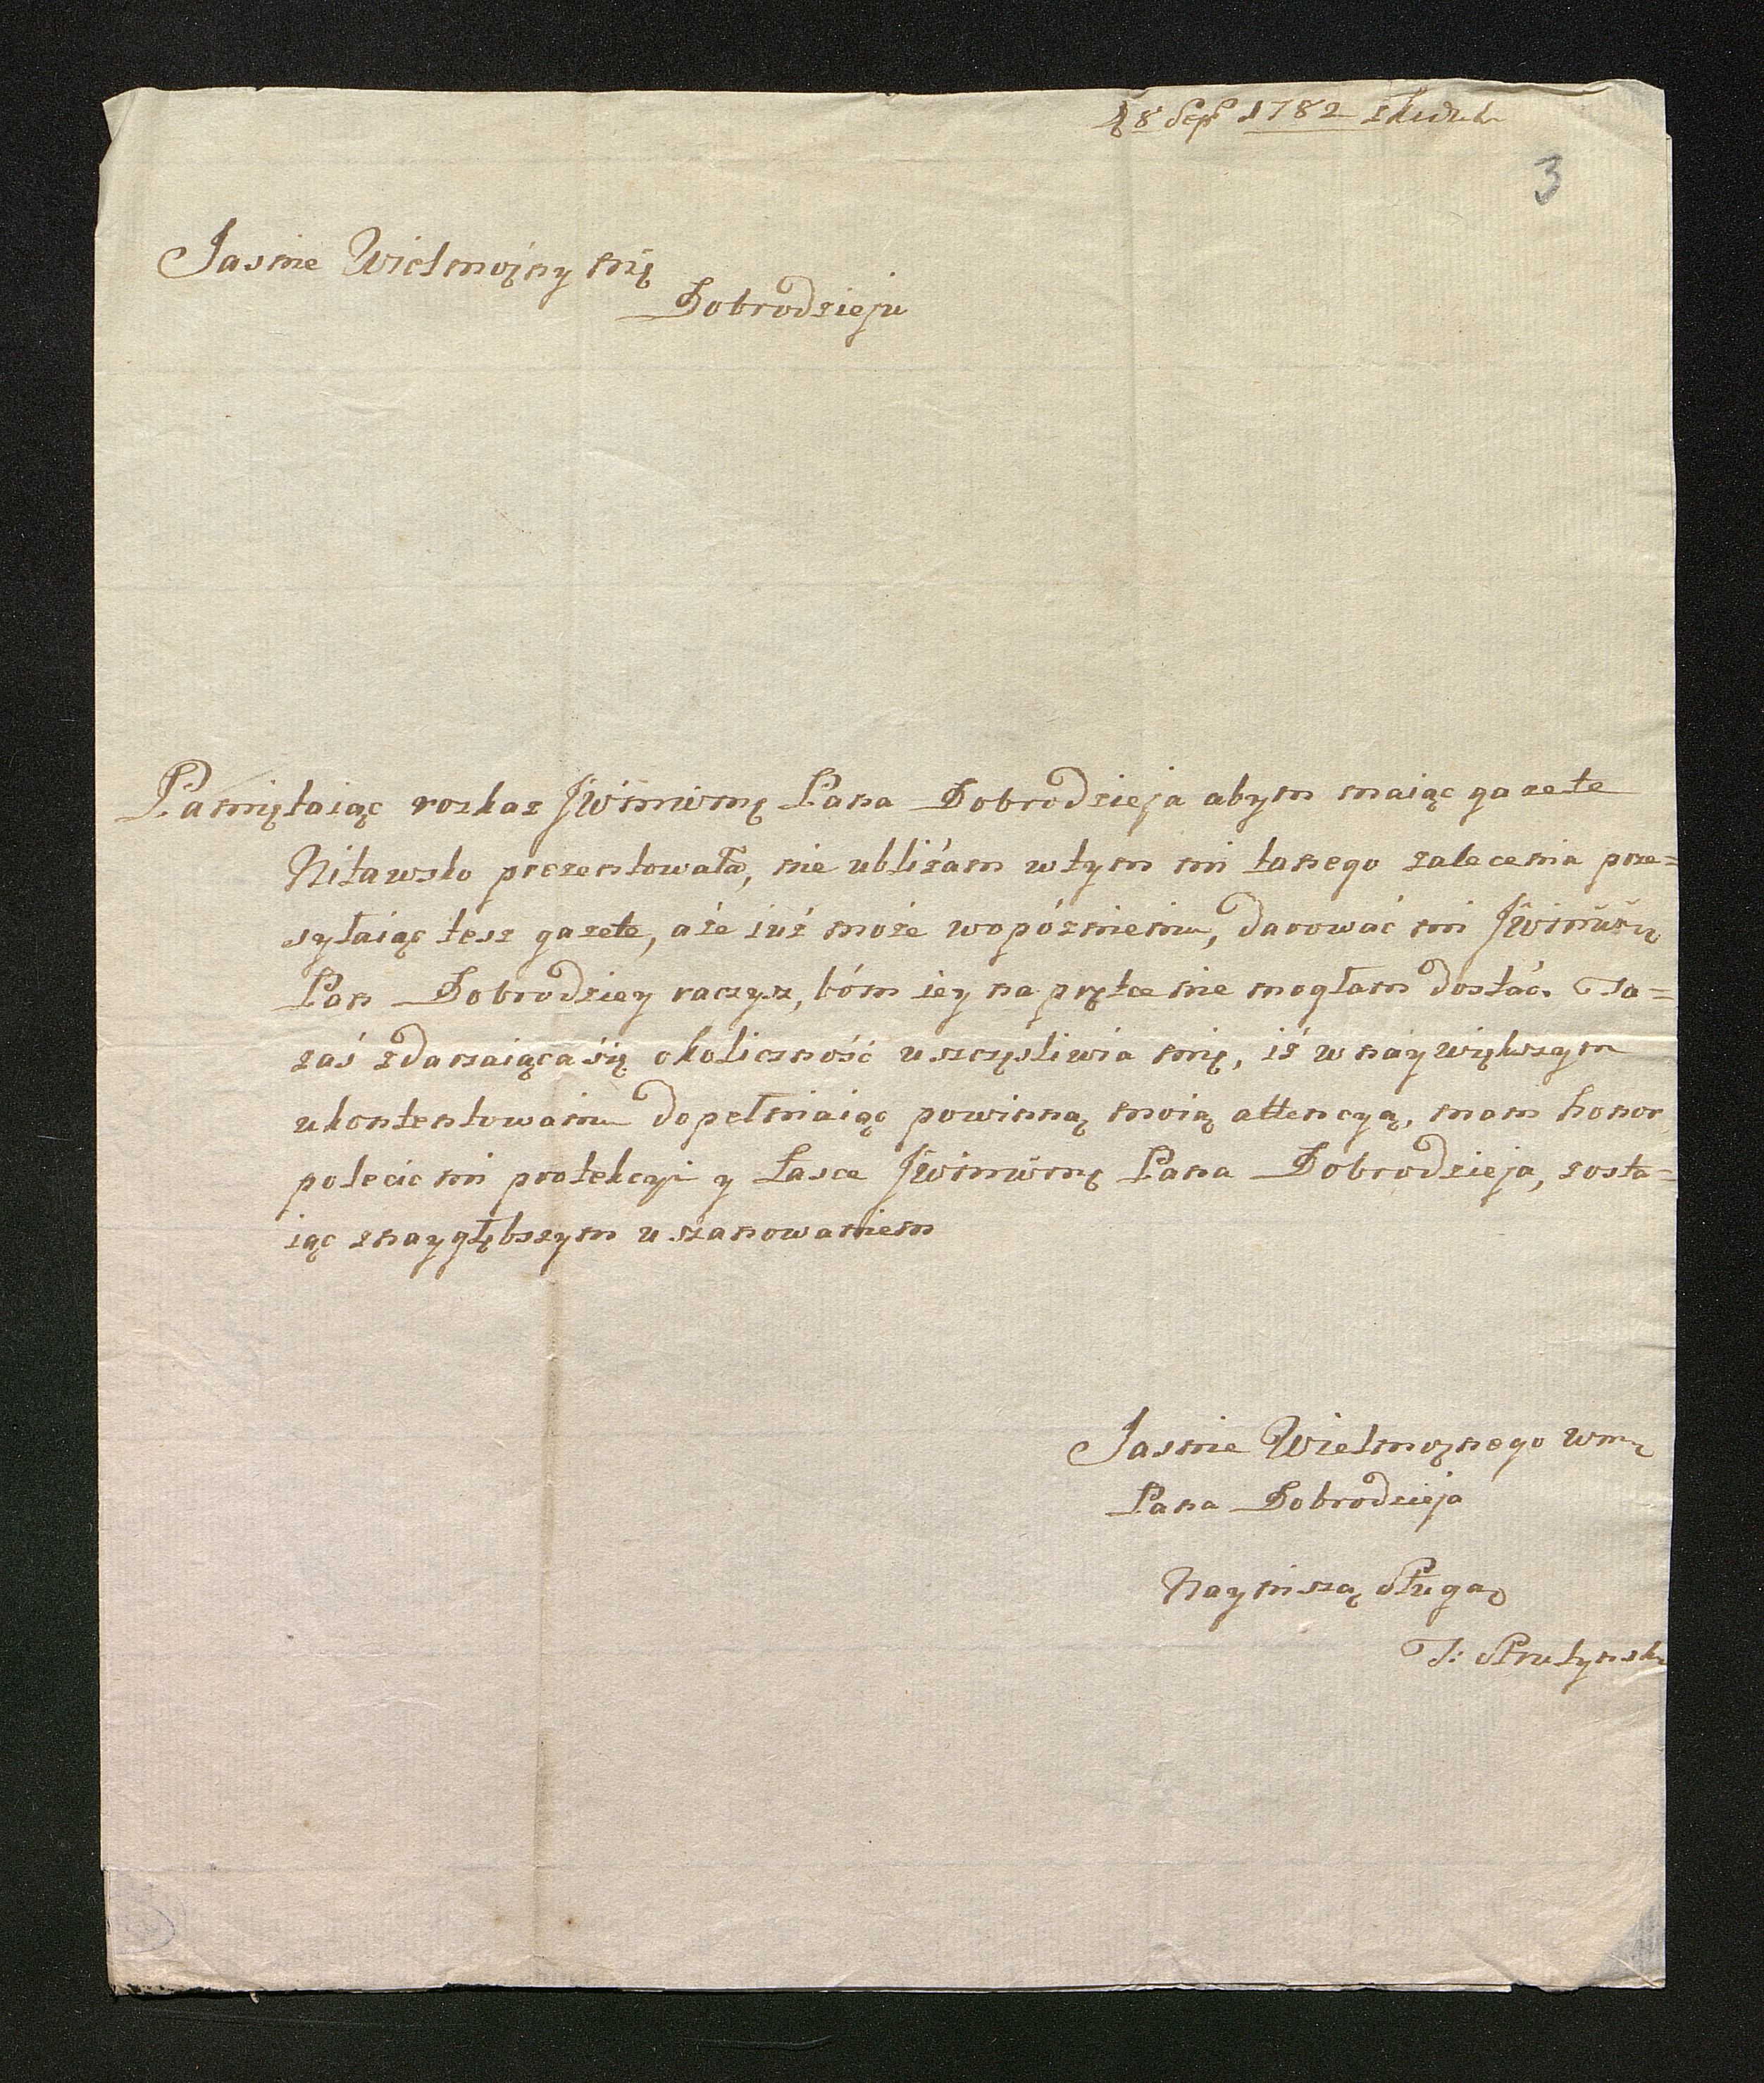 28 Sep 1782
3
Jasnie Wielmożny mię
Dobrodzieju
Pamiętaiąc roskaz JWWM Pana Dobrodzieja abym maiąc gazete
Mitawsko prezentowała, nie ubliżam wtym mi łanego zalecenia prze=
syłaiąc tesz gazete, aże iuż może wopóznieniu, darować mi
Pan Dobrodziey raczysz, bóm iey na prętce nie mogłam dostać. Ta=
zaś zdarzaiąca się okoliczność uszczęsliwia mię, iż w naywiększym
ukontentowaniu dopełniaiąc powinną moią attencyą, mam honor
polecic mi protekcyi y Łasce Pana Dobrodzieja, zosta=
iąc znaygłębszym uszanowaniem
Jasnie Wielmożnego wmę
Pana Dobrodzieja
Nayniszą Sługą